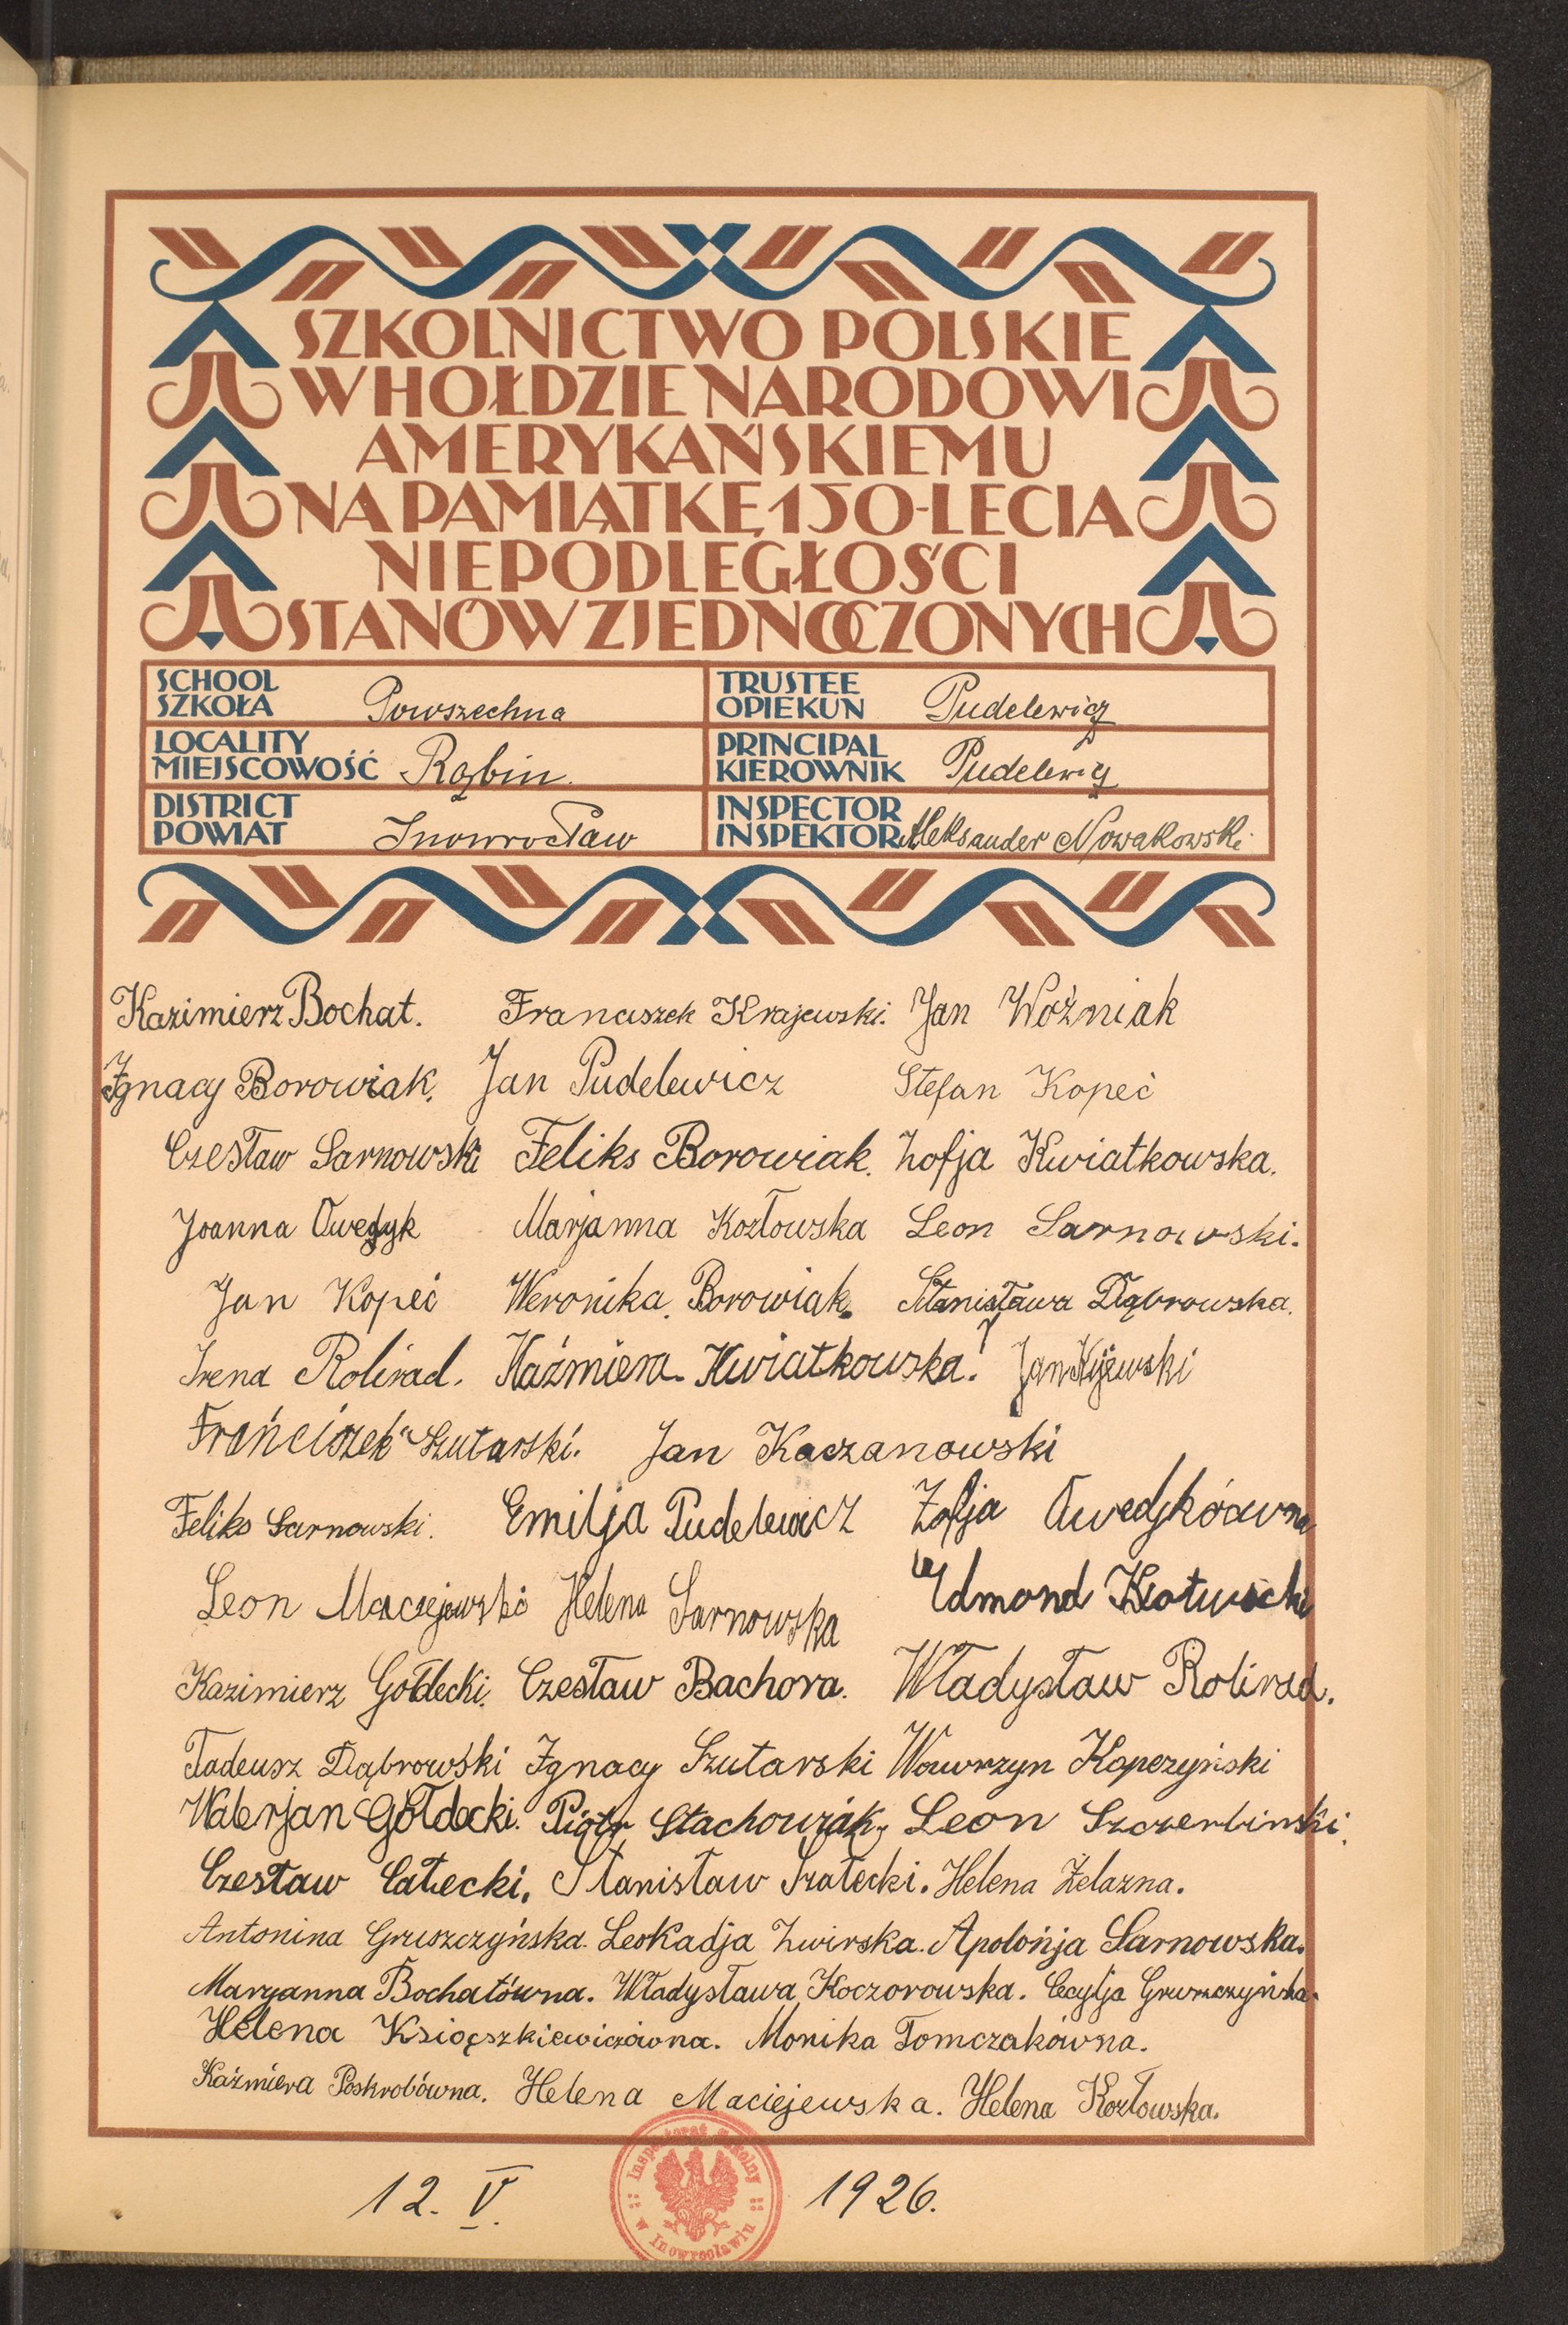 SZKOLNICTWO POLSKIE
W HOŁDZIE NARODOWI
AMERYKAŃSKIEMU
NA PAMIĄTKĘ 150-LECIA
NIEPODLEGŁOŚCI
STANÓW ZJEDNOCZONYCH
SCHOOL
SZKOŁA Powszechna
TRUSTEE
OPIEKUN Pudelewicz
LOCALITY
MIEJSCOWOŚĆ Rąbin.
PRINCIPAL
KIEROWNIK Pudelewicz
DISTRICT
POWIAT Inowrocław
INSPECTOR
INSPEKTOR Aleksander Nowakowski
Kazimierz Bochat. Franciszek Krajewski. Jan Woźniak
Ignacy Borowiak. Jan Pudelewicz Stefan Kopeć
Czesław Sarnowski Feliks Borowiak. Zofja Kwiatkowska.
Joanna Marjanna Kozłowska Leon Sarnowski.
Jan Kopeć Weronika Borowiak. Stanisława Dąbrowska.
Irena Rolirad. Kaźmiera Kwiatkowska. Jan Kijewski
Franciszek Szutarski. Jan Kaczanowski
Feliks Sarnowski. Emilja Pudelewicz Zofja
Leon Maciejewski Helena Sarnowska Edmond
Kazimierz Gołdecki. Czesław Bachora. Władysław Rolirad.
Tadeusz Dąbrowski Ignacy Szutarski Wawrzyn Kopczyński
Walerjan Gołdecki. Piotr Stachowiak. Leon Szczerbinski.
Czesław Całecki. Stanisław Szałecki. Helena Żelazna.
Antonina Gruszczyńska. Leokadja Żwirska. Apolońja Sarnowska.
Maryanna Bochatówna. Władysława Koczorowska. Cecylja Gruszczyńska.
Helena Ksioęszkiewiczówna. Monika Tomczakówna.
Kaźmiera Poskrobówna. Helena Maciejewska. Helena Kozłowska.
12. V. 1926.
Inspektorat szkolny
w Inowrocławiu